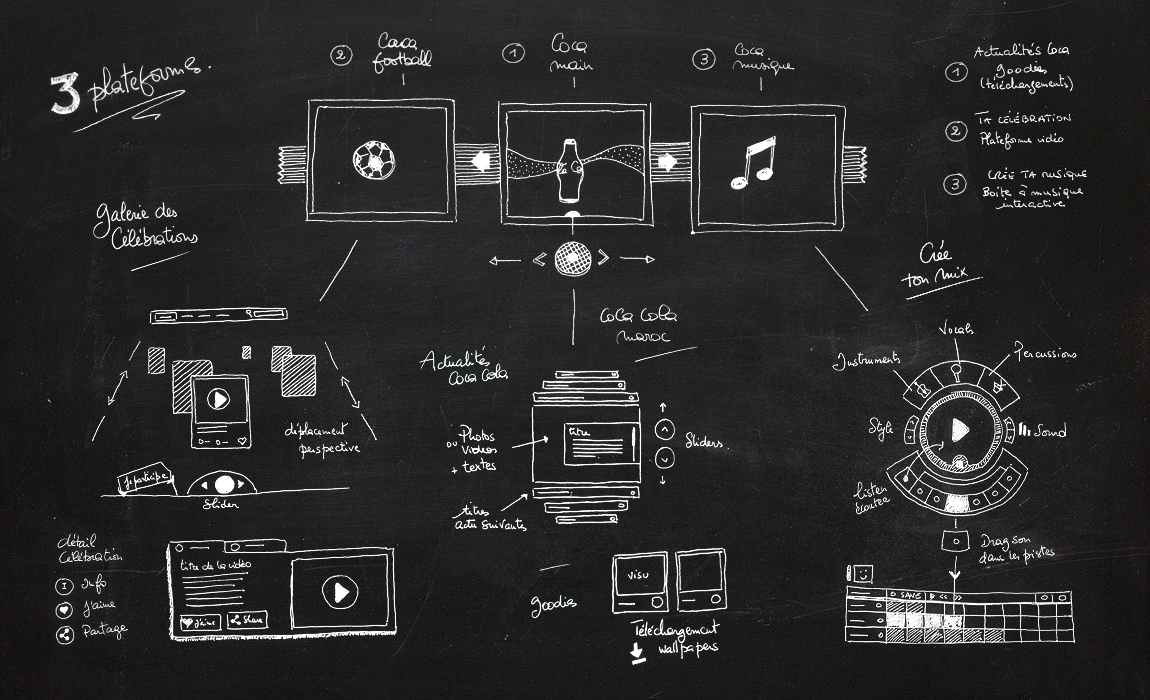 3 plateforms.
2
Coca
football
1
Coca
main
3
Coca
musique
1
Actualités Coca
goodies
(téléchargements)
2
TA CÉLÉBRATION
Plateforme vidéo
3
CRÉE TA MUSIQUE
Boite à musique
interactive
Galerie des
Célébrations
déplacement
perspective
Je participe
Slider
détail
Célébration
I Info
J'aime
Partage
titre de la vidéo
J'aime
Share
Coca Cola
maroc
Actualités
Coca Cola
ou Photos
Videos
+ textes
titre
Sliders
titres
actu suivants
goodies
visu
Téléchargement
wallpapers
Crée
ton mix
Vocals
Instruments
Percussions
Style
Sound
listen
écouter
Drag son
dans les pistes
SAVE